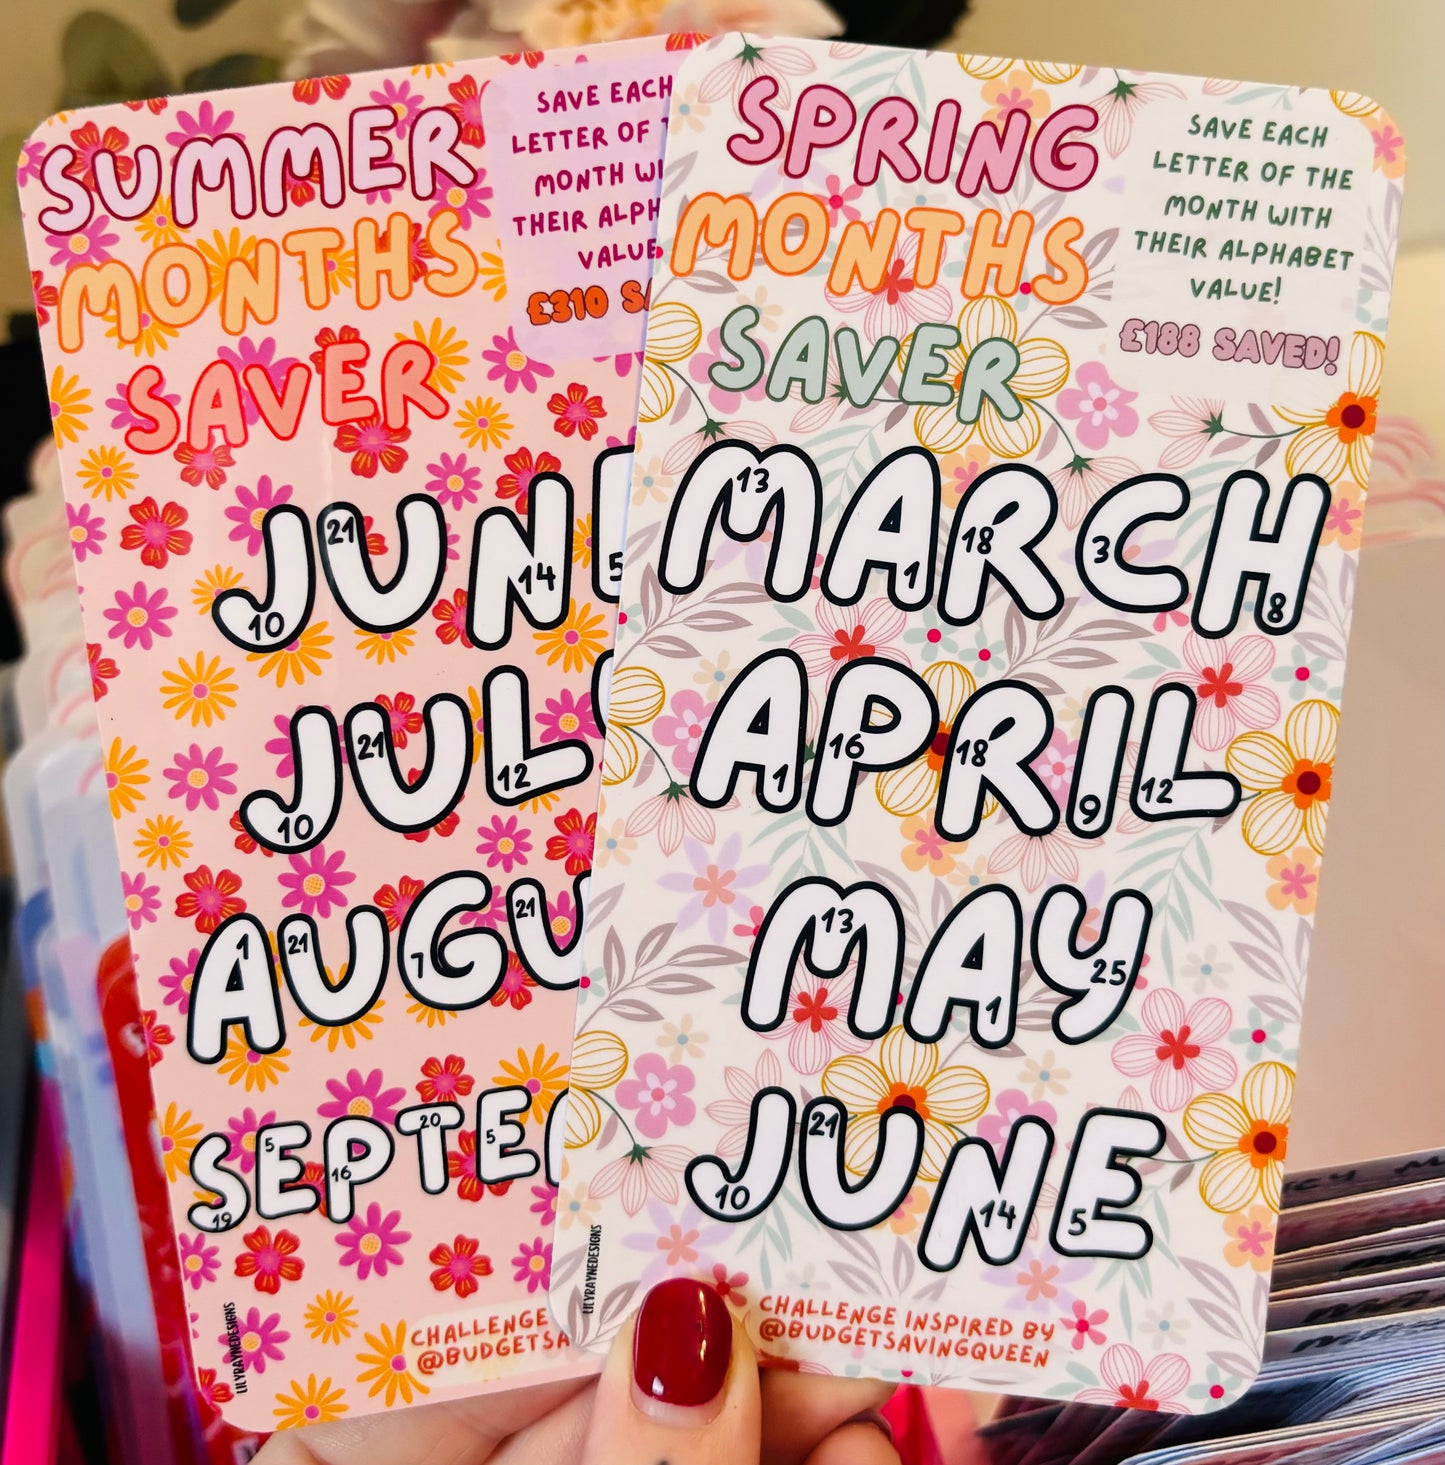 SUMMER
MONTHS
SAVER
SAVE EACH
LETTER OF
MONTH
THEIR
VALUE
£310
JUNE
10 21 14 5
JUL
10 21 12
AUGU
1 21 7 21
SEPTE
19 5 16 20 5
LILYRAYNEDESIGNS
CHALLENGE
@BUDGETSA
SPRING
MONTHS
SAVER
SAVE EACH
LETTER OF THE
MONTH WITH
THEIR ALPHABET
VALUE!
£188 SAVED!
MARCH
13 1 18 3 8
APRIL
1 16 18 9 12
MAY
13 1 25
JUNE
10 21 14 5
LILYRAYNEDESIGNS
CHALLENGE INSPIRED BY
@BUDGETSAVINGQUEEN